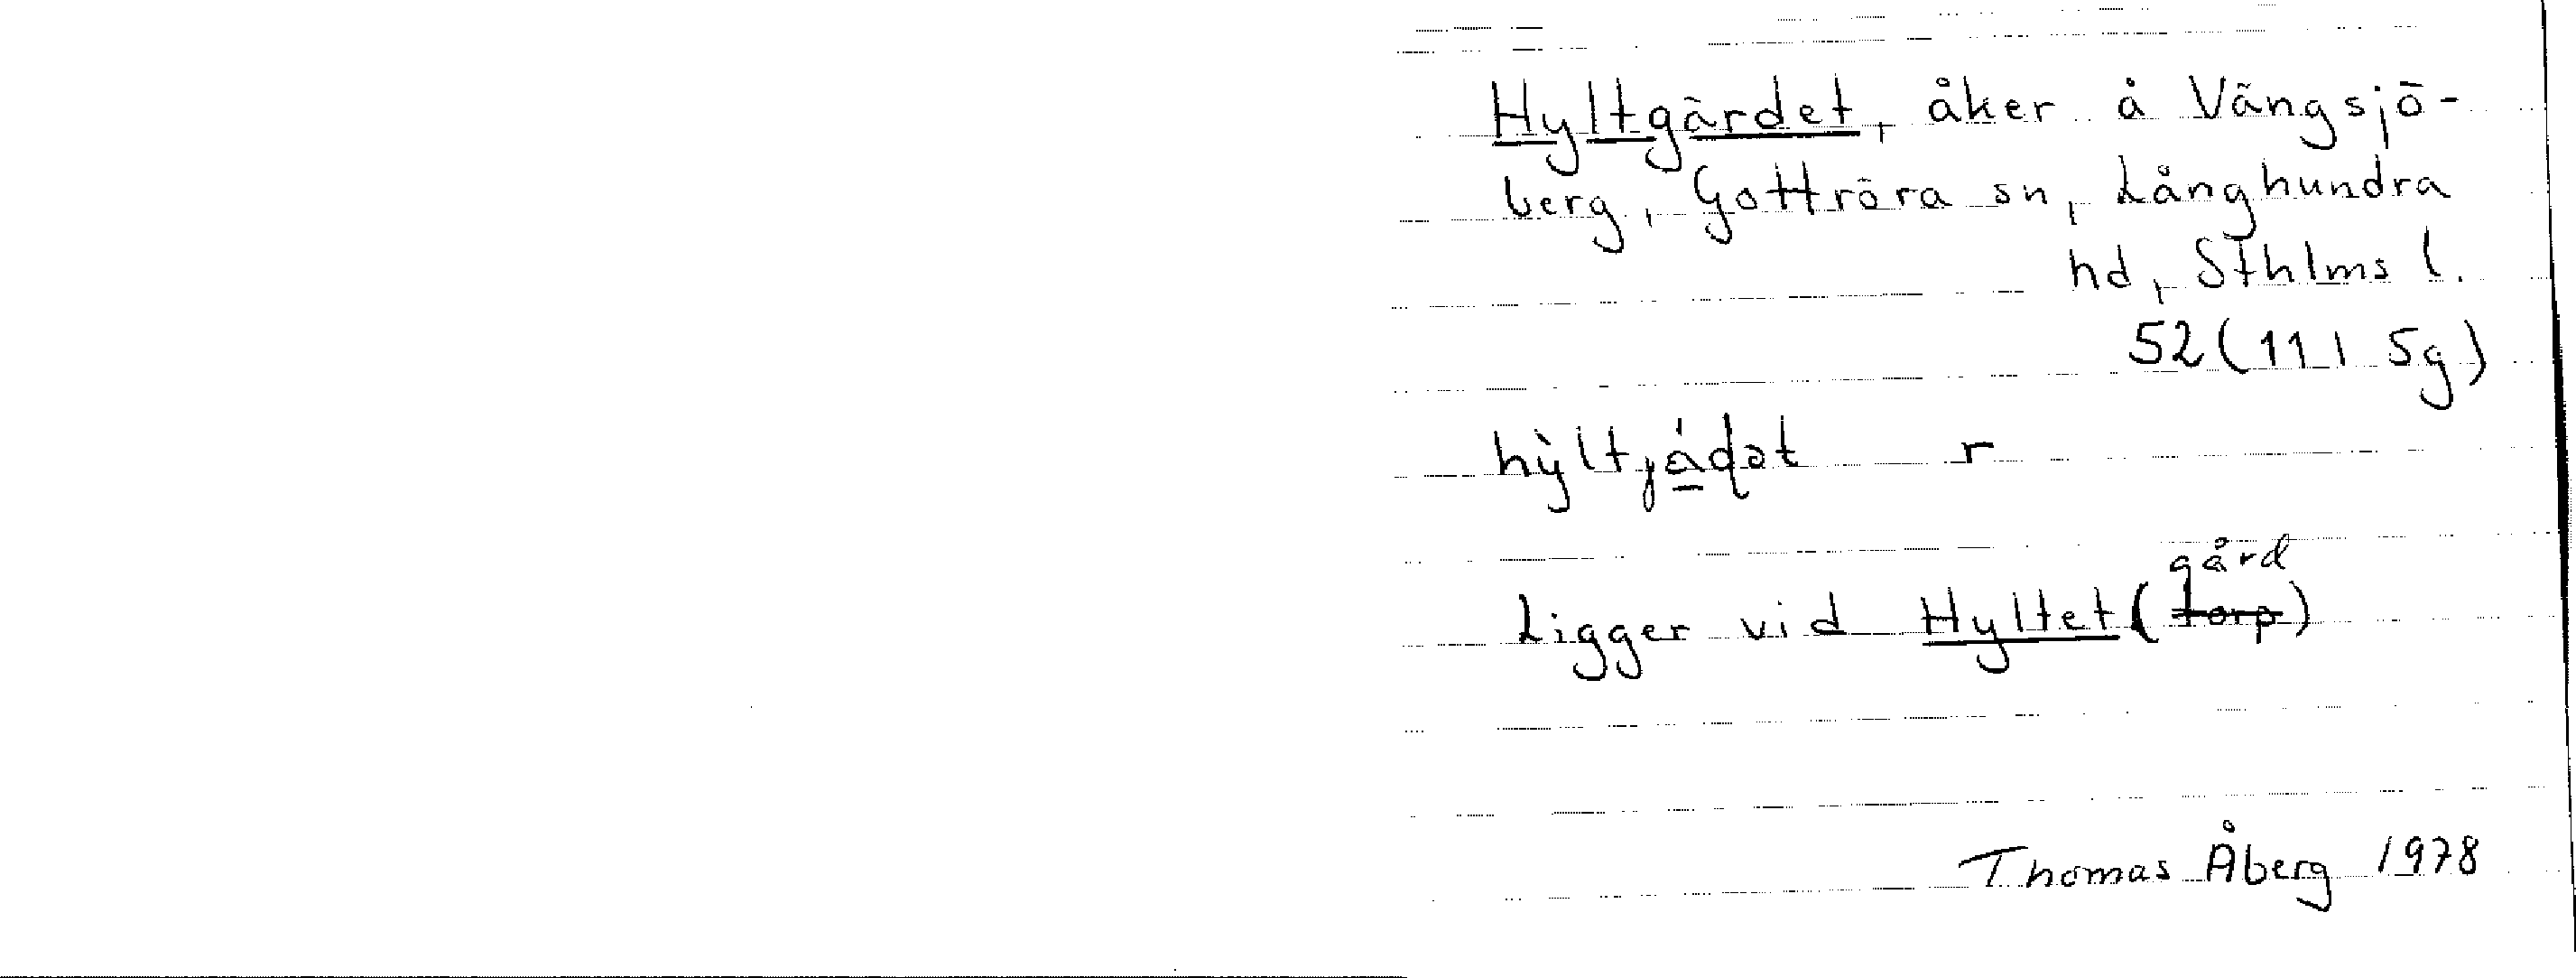 Hyltgärdet, åker å Vängsjö-
berg, Gottröra sn, Långhundra
hd, Sthlms l.
52 (11I 5g)
r
gård
Ligger vid Hyltet (torp)
Thomas Åberg 1978